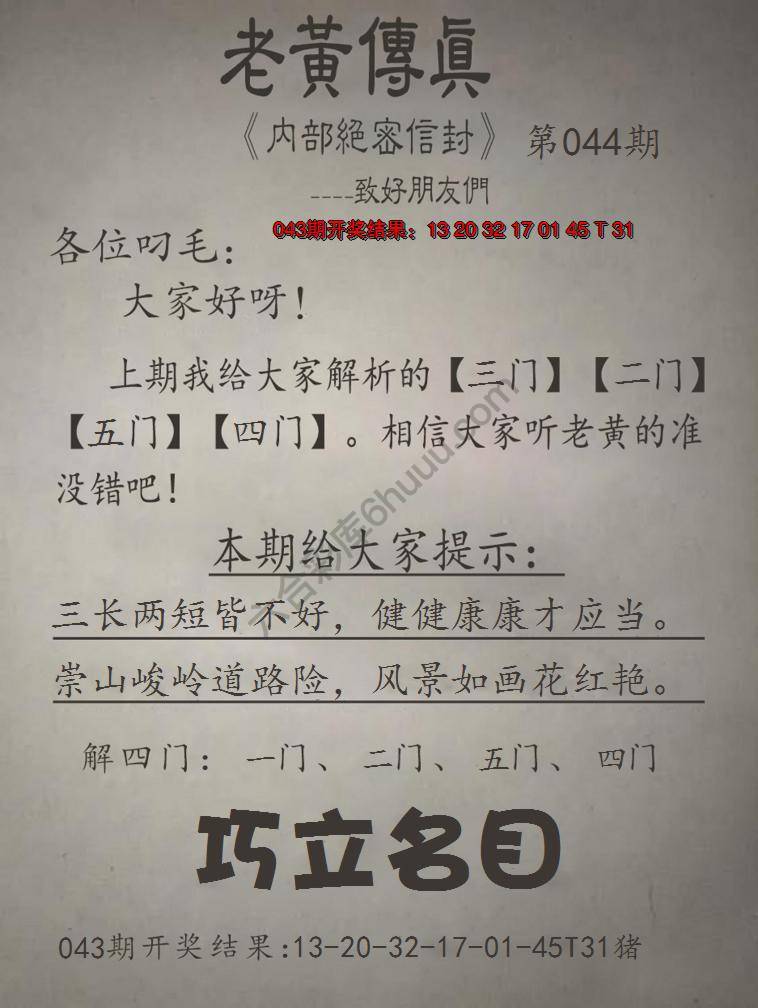 老黃傳眞
《内部絕密信封》 第044期
----致好朋友們
043期开奖结果：13 20 32 17 01 45 T 31
各位叼毛：
大家好呀！
上期我给大家解析的【三门】【二门】
【五门】【四门】。相信大家听老黄的准
没错吧！
本期给大家提示：
三长两短皆不好，健健康康才应当。
崇山峻岭道路险，风景如画花红艳。
解四门：一门、二门、五门、四门
巧立名目
043期开奖结果:13-20-32-17-01-45T31猪
六合彩库6huuu.com